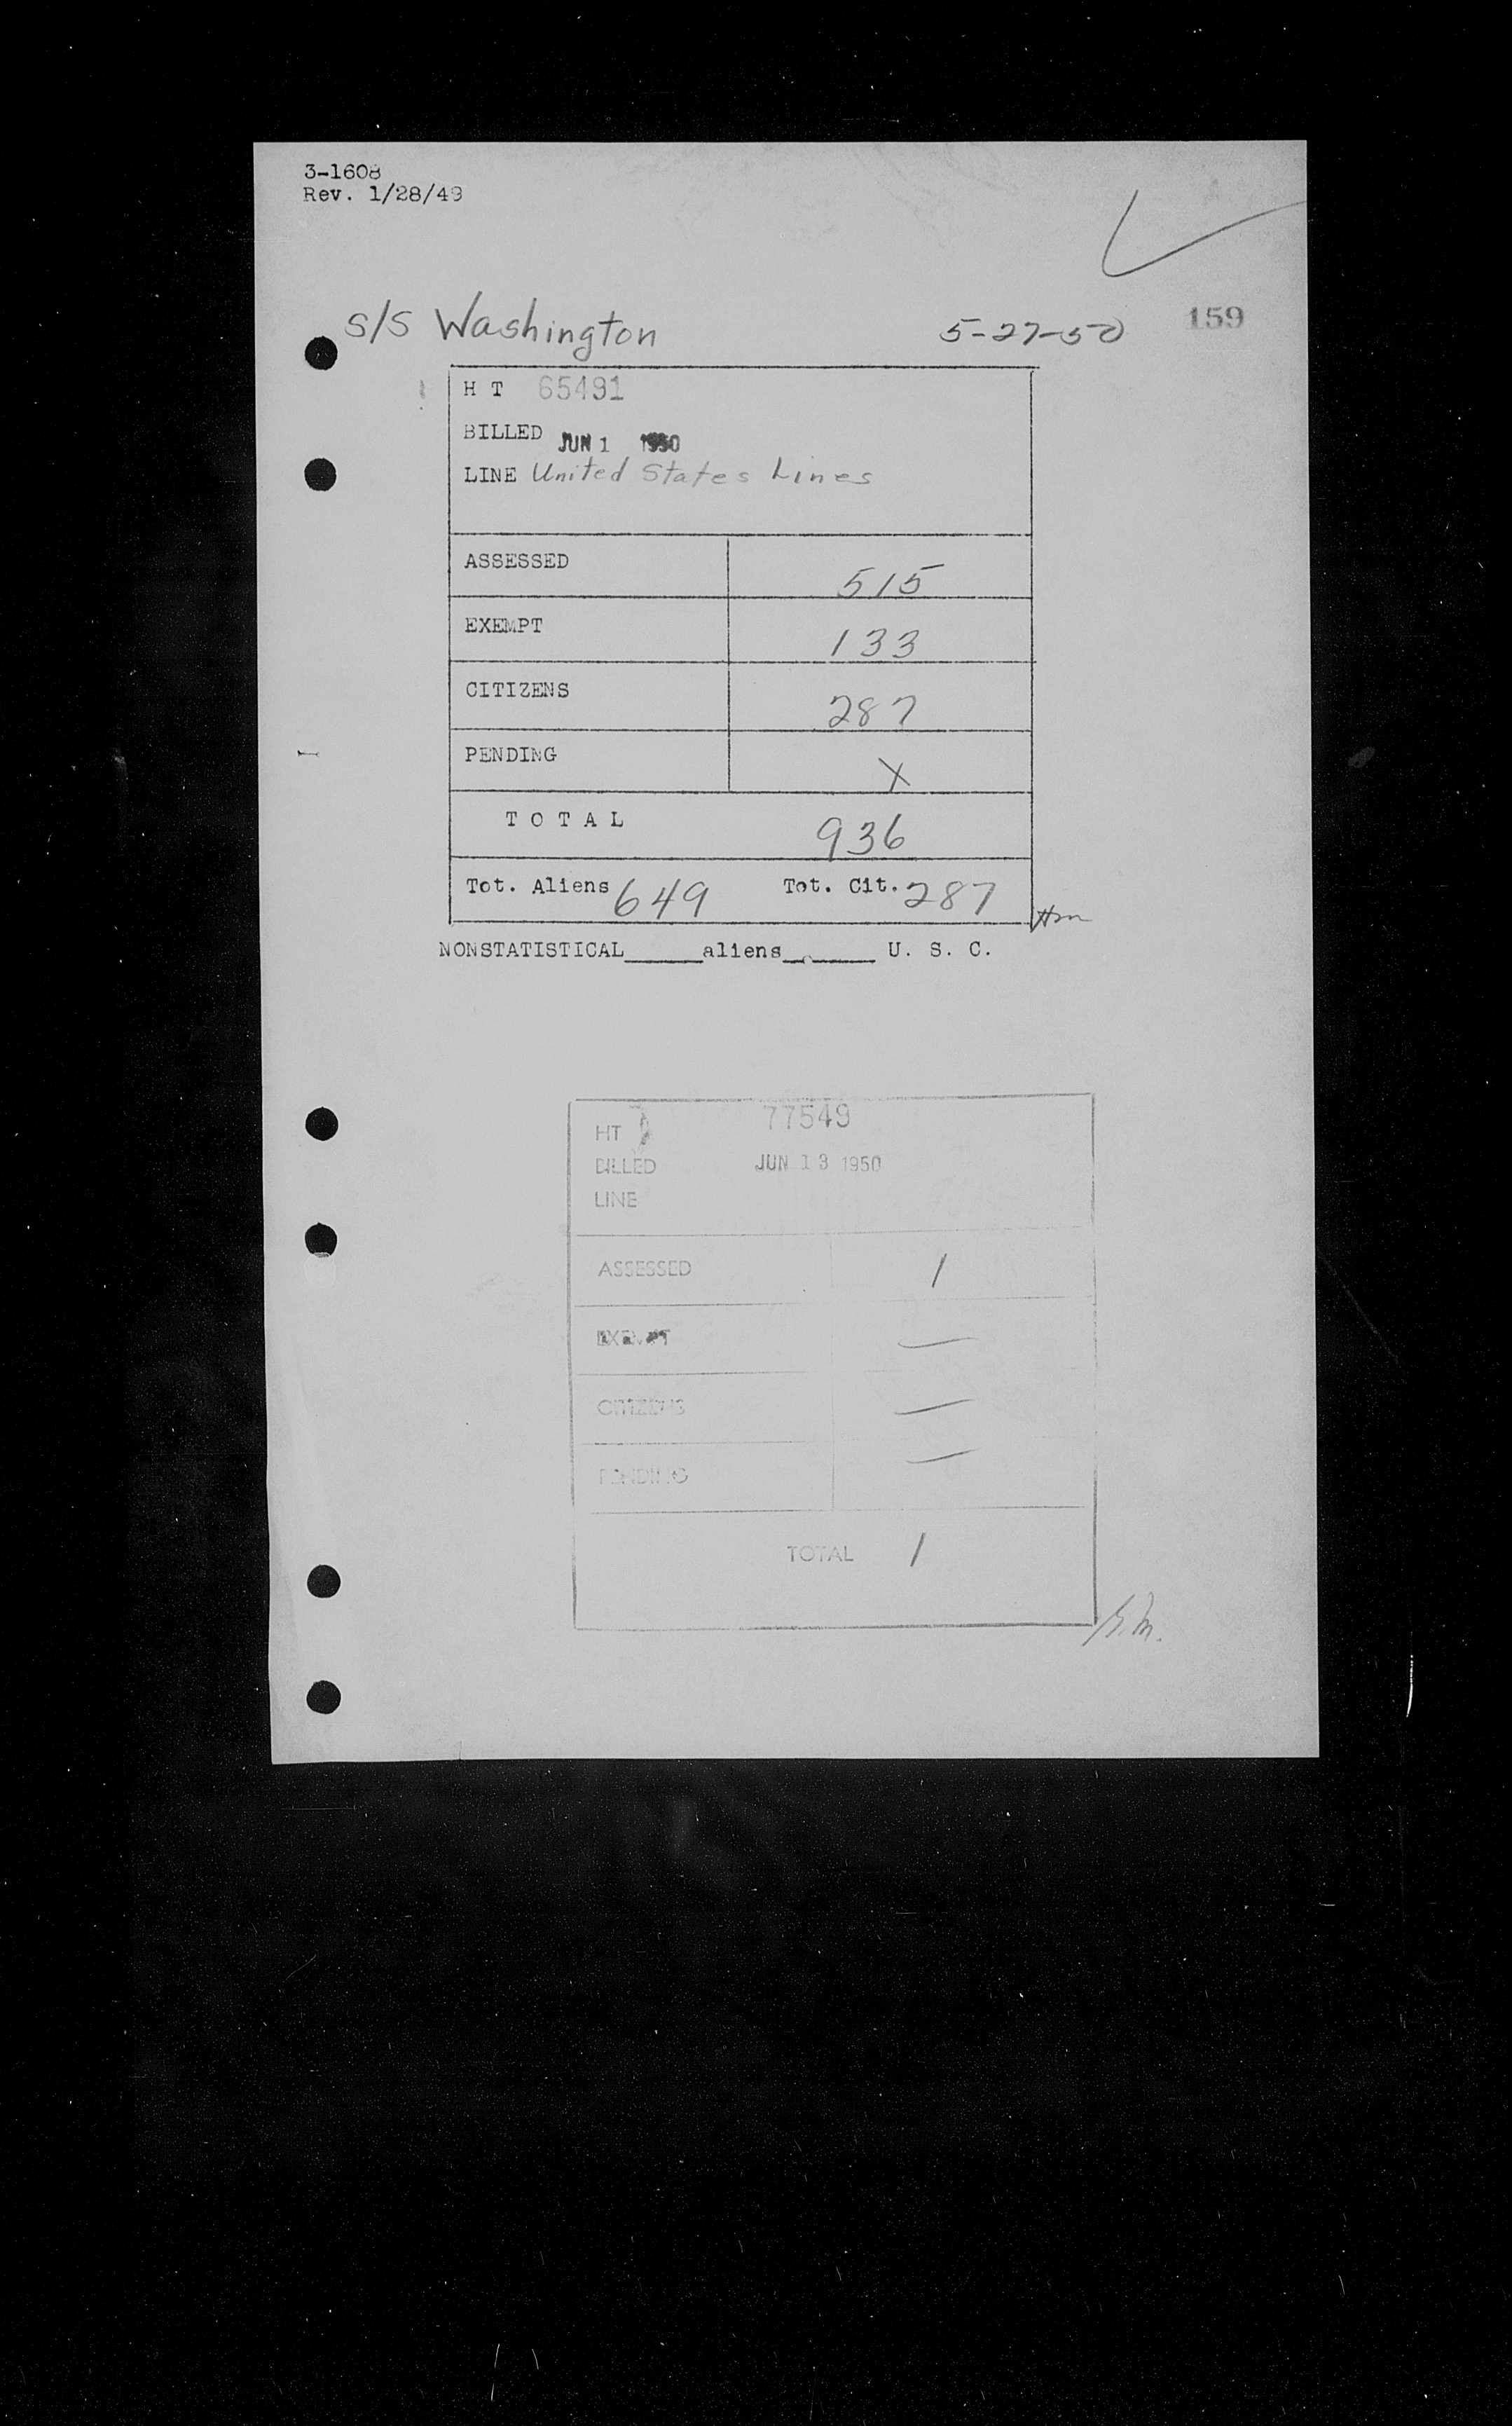 3-1608
Rev. 1/28/49
S/S Washington 5-27-50 159
H T 65491
BILLED JUN 1 1950
LINE United States Lines
ASSESSED 515
EXEMPT 133
CITIZENS 287
PENDING X
TOTAL 936
Tot. Aliens 649 Tot. Cit. 287
NONSTATISTICAL_____aliens______ U. S. C.
HT 77549
BILLED JUN 13 1950
LINE
ASSESSED 1
EXEMPT —
CITIZENS —
PENDING —
TOTAL 1